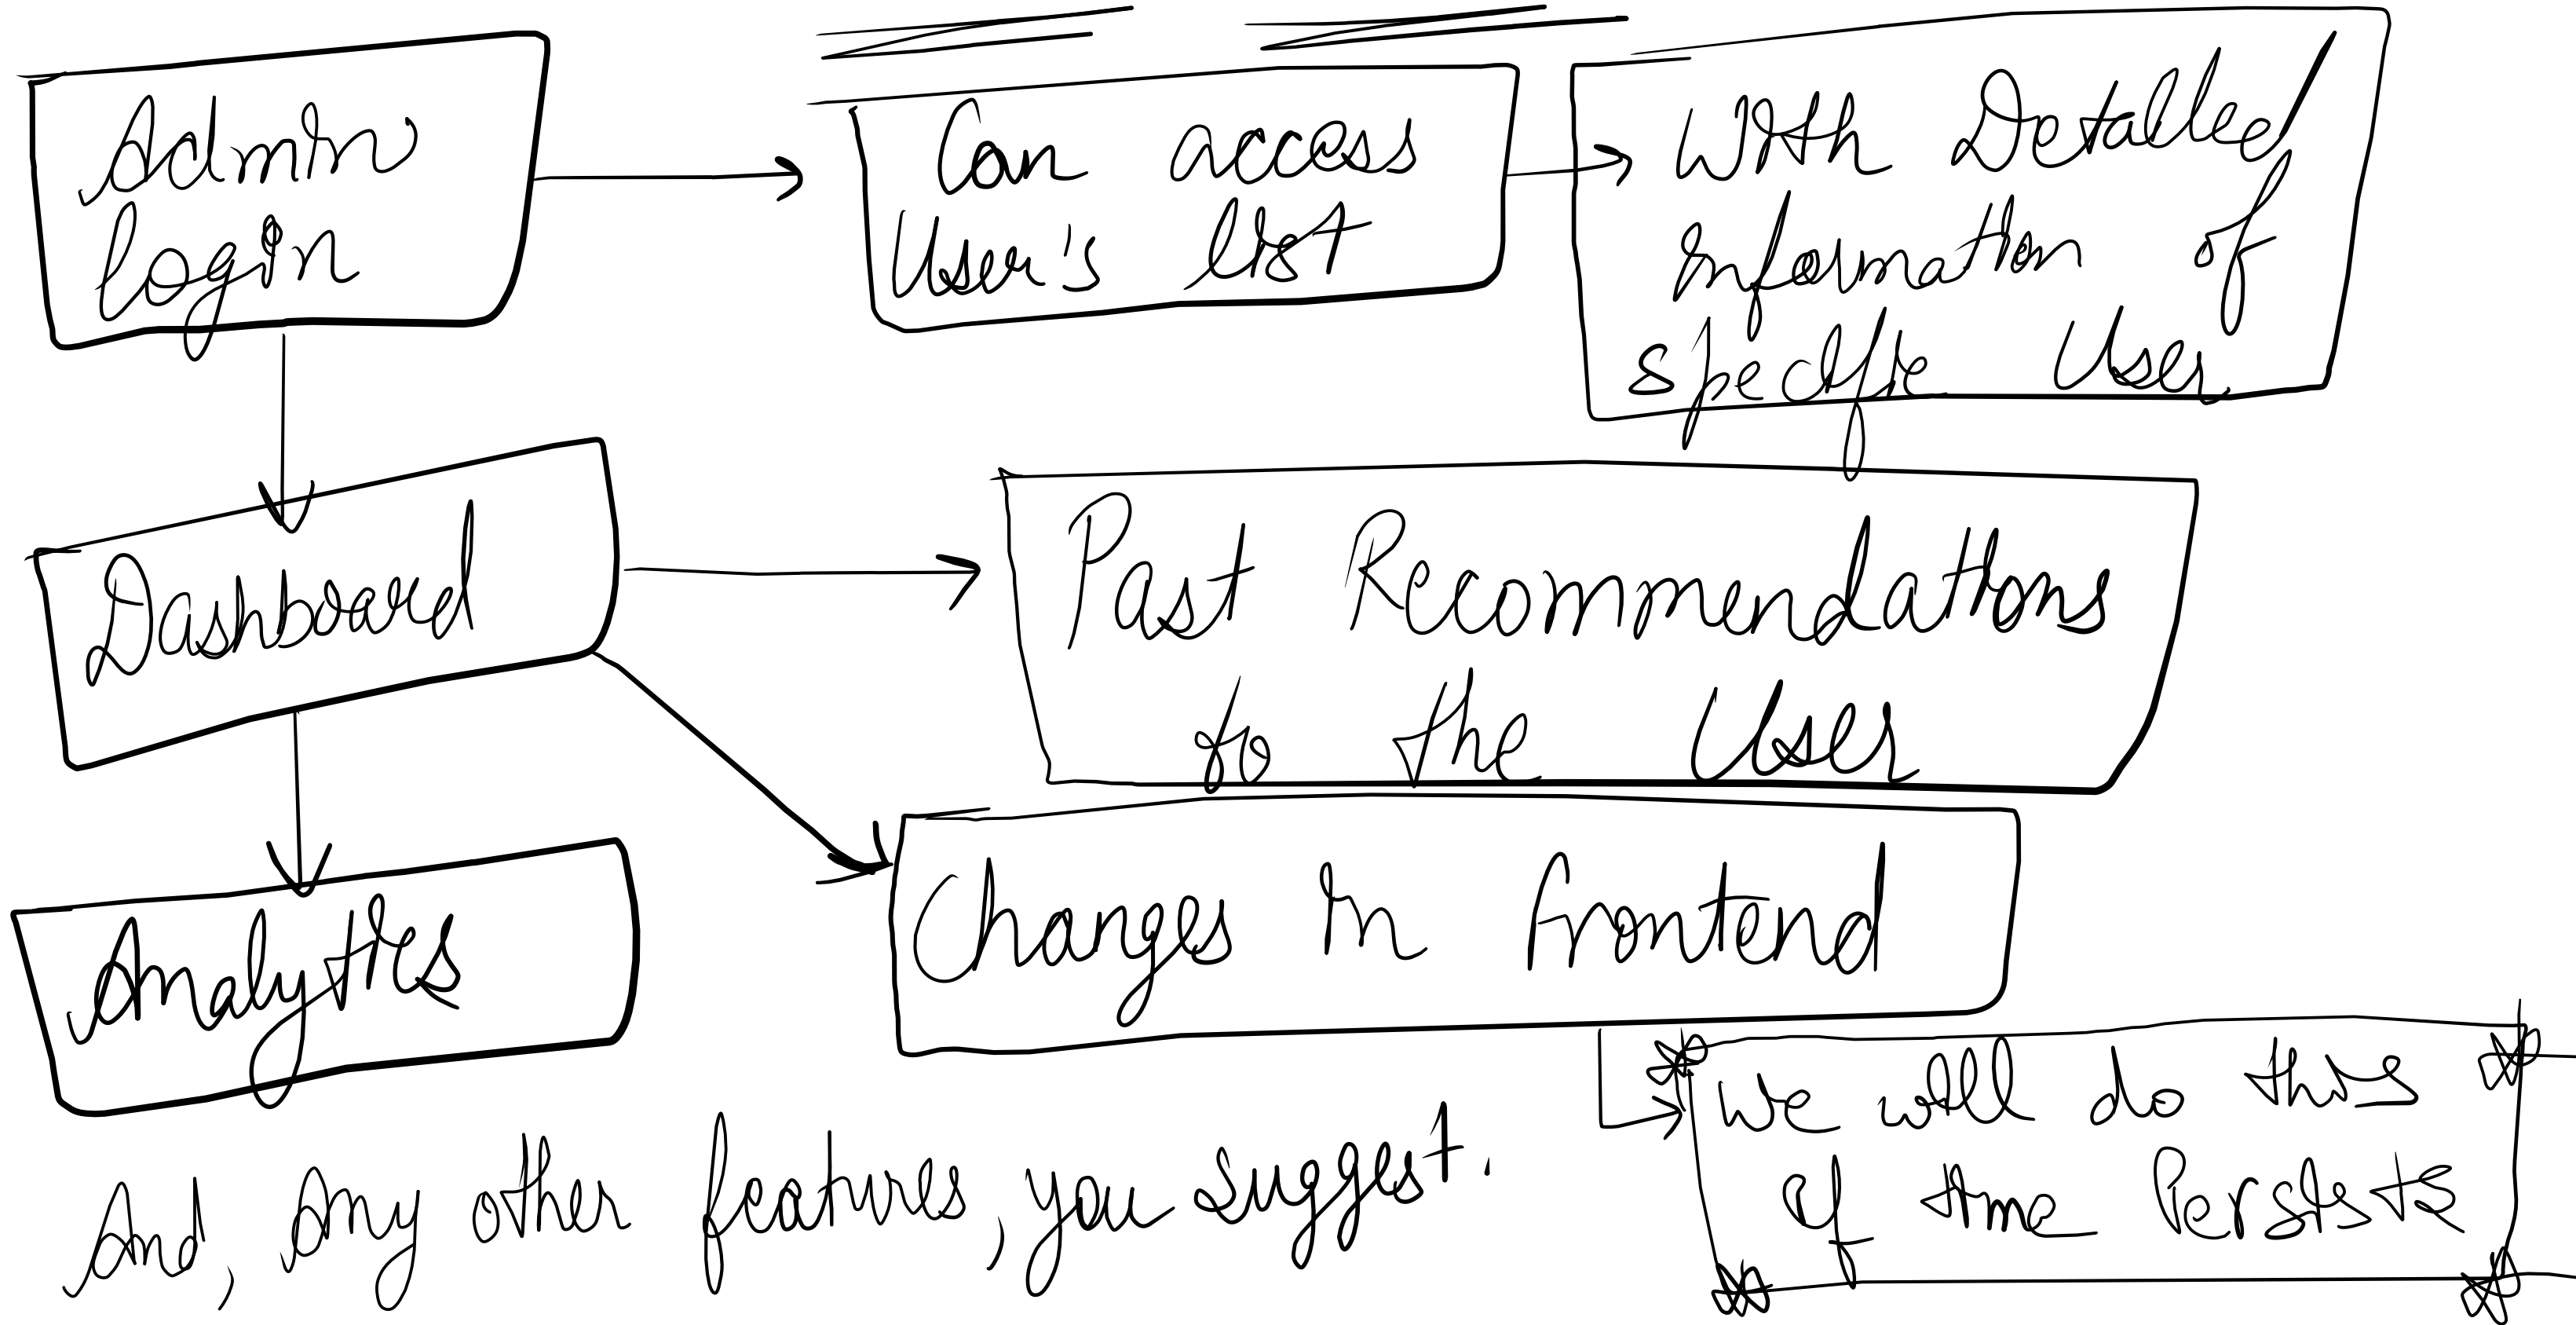 Admin
login
Can access
User's list
With Detailed
information of
specific User
Dashboard
Past Recommendations
to the User
Analytics
Changes in frontend
we will do this
if time Persists
And, Any other features, you suggest.